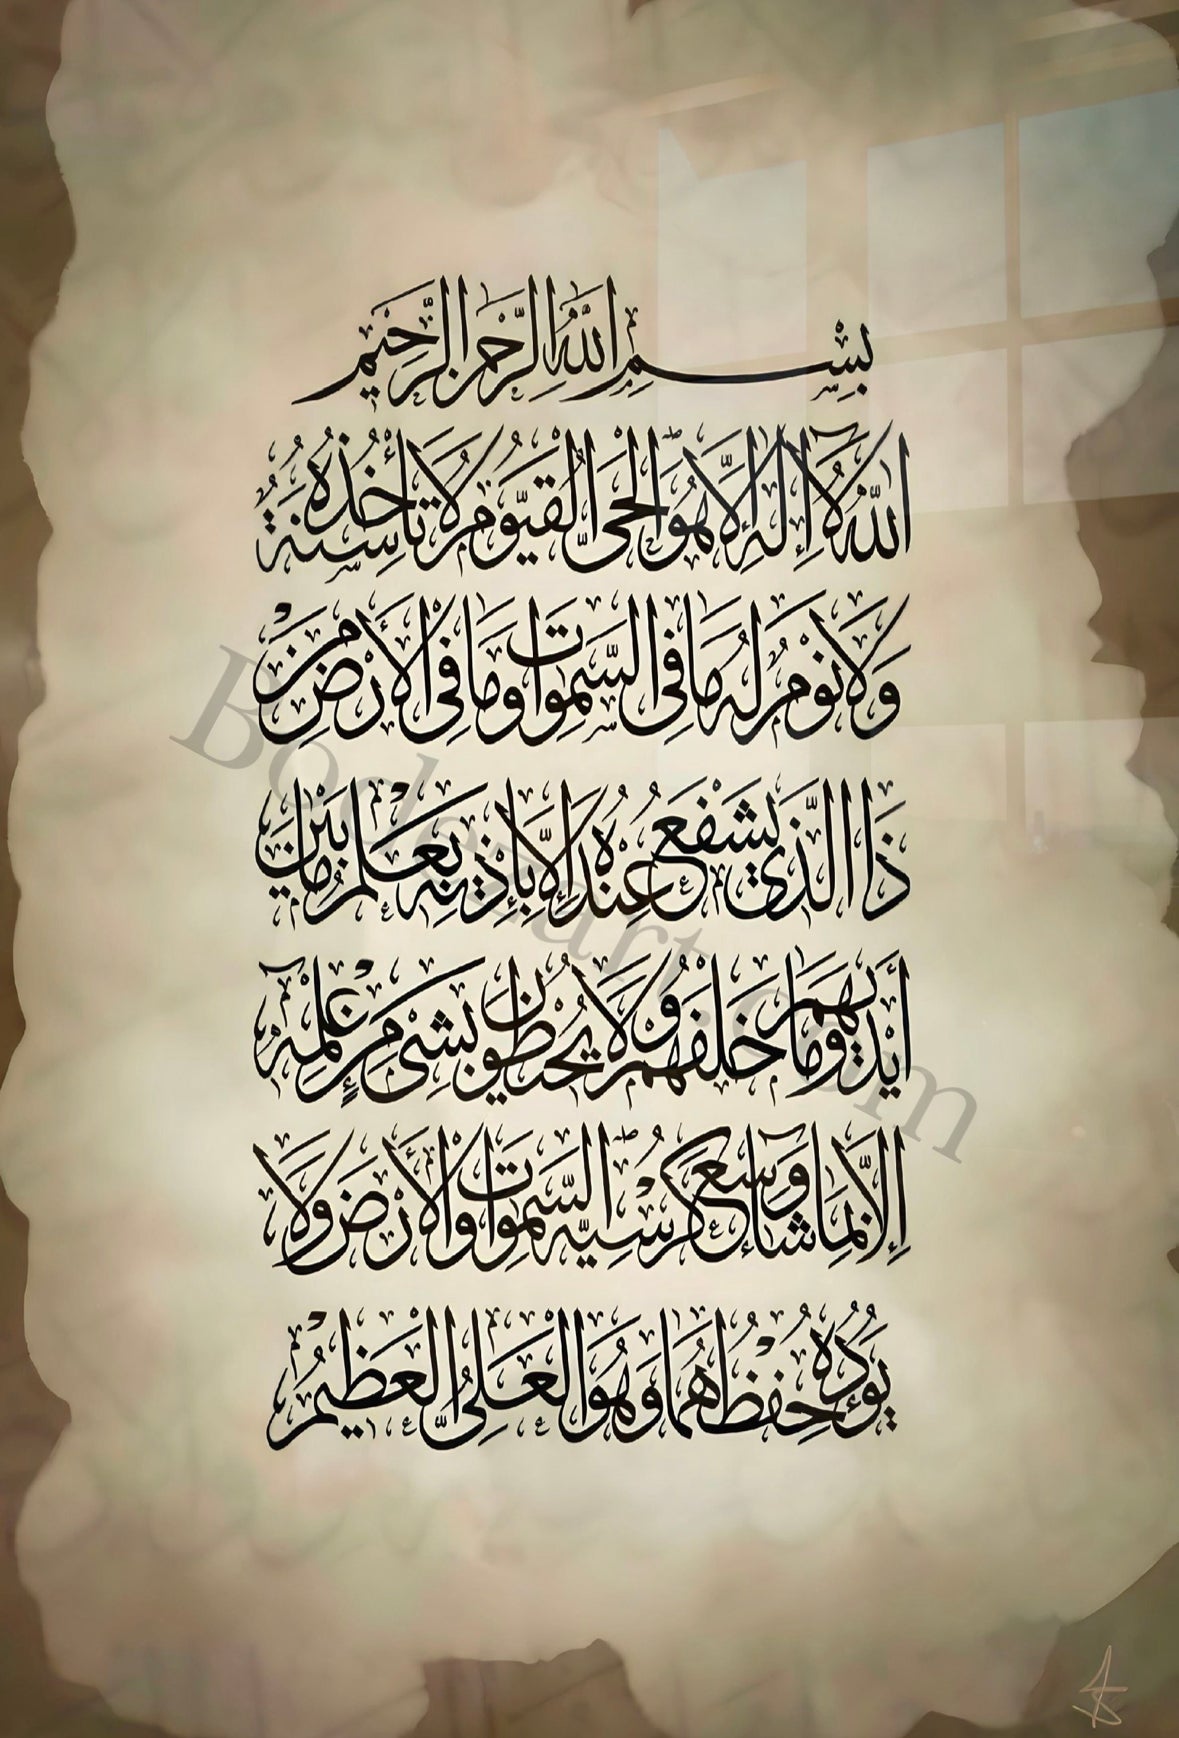 بِسْمِ اللهِ الرَّحْمٰنِ الرَّحِيْمِ
اللهُ لَا إِلٰهَ إِلَّا هُوَ الْحَيُّ الْقَيُّومُ لَا تَأْخُذُهُ سِنَةٌ
وَلَا نَوْمٌ لَهُ مَا فِي السَّمٰوَاتِ وَمَا فِي الْأَرْضِ مَنْ
ذَا الَّذِي يَشْفَعُ عِنْدَهُ إِلَّا بِإِذْنِهِ يَعْلَمُ مَا بَيْنَ
أَيْدِيهِمْ وَمَا خَلْفَهُمْ وَلَا يُحِيطُونَ بِشَيْءٍ مِنْ عِلْمِهِ
إِلَّا بِمَا شَاءَ وَسِعَ كُرْسِيُّهُ السَّمٰوَاتِ وَالْأَرْضَ وَلَا
يَؤُدُهُ حِفْظُهُمَا وَهُوَ الْعَلِيُّ الْعَظِيمُ
Bodezart.com